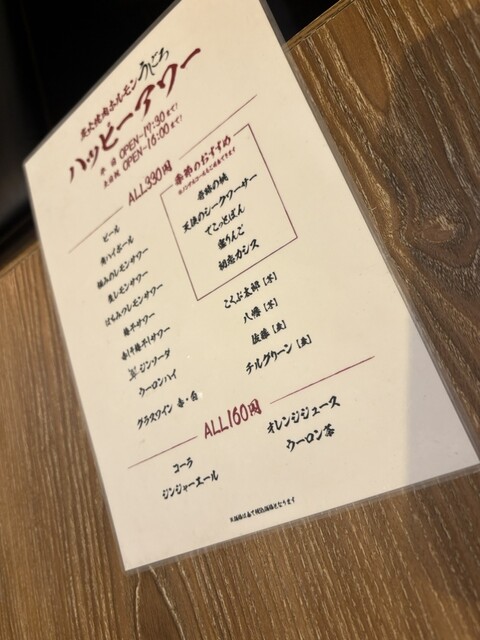 炭火焼肉ホルモン うしごろ
ハッピーアワー
平日 OPEN~17:30まで!
土日祝 OPEN~16:00まで!
ALL330円
ビール
角ハイボール
極みのレモンサワー
生レモンサワー
はちみつレモンサワー
梅干サワー
ジンソーダ
ウーロンハイ
グラスワイン 赤・白
季節のおすすめ
天使のシークワーサー
でこっとぽん
蜜りんご
初恋カシス
こくぶ太郎【芋】
八幡【芋】
佐藤【麦】
チルグリーン【麦】
ALL160円
コーラ
ジンジャーエール
オレンジジュース
ウーロン茶
※価格は全て税込価格となります